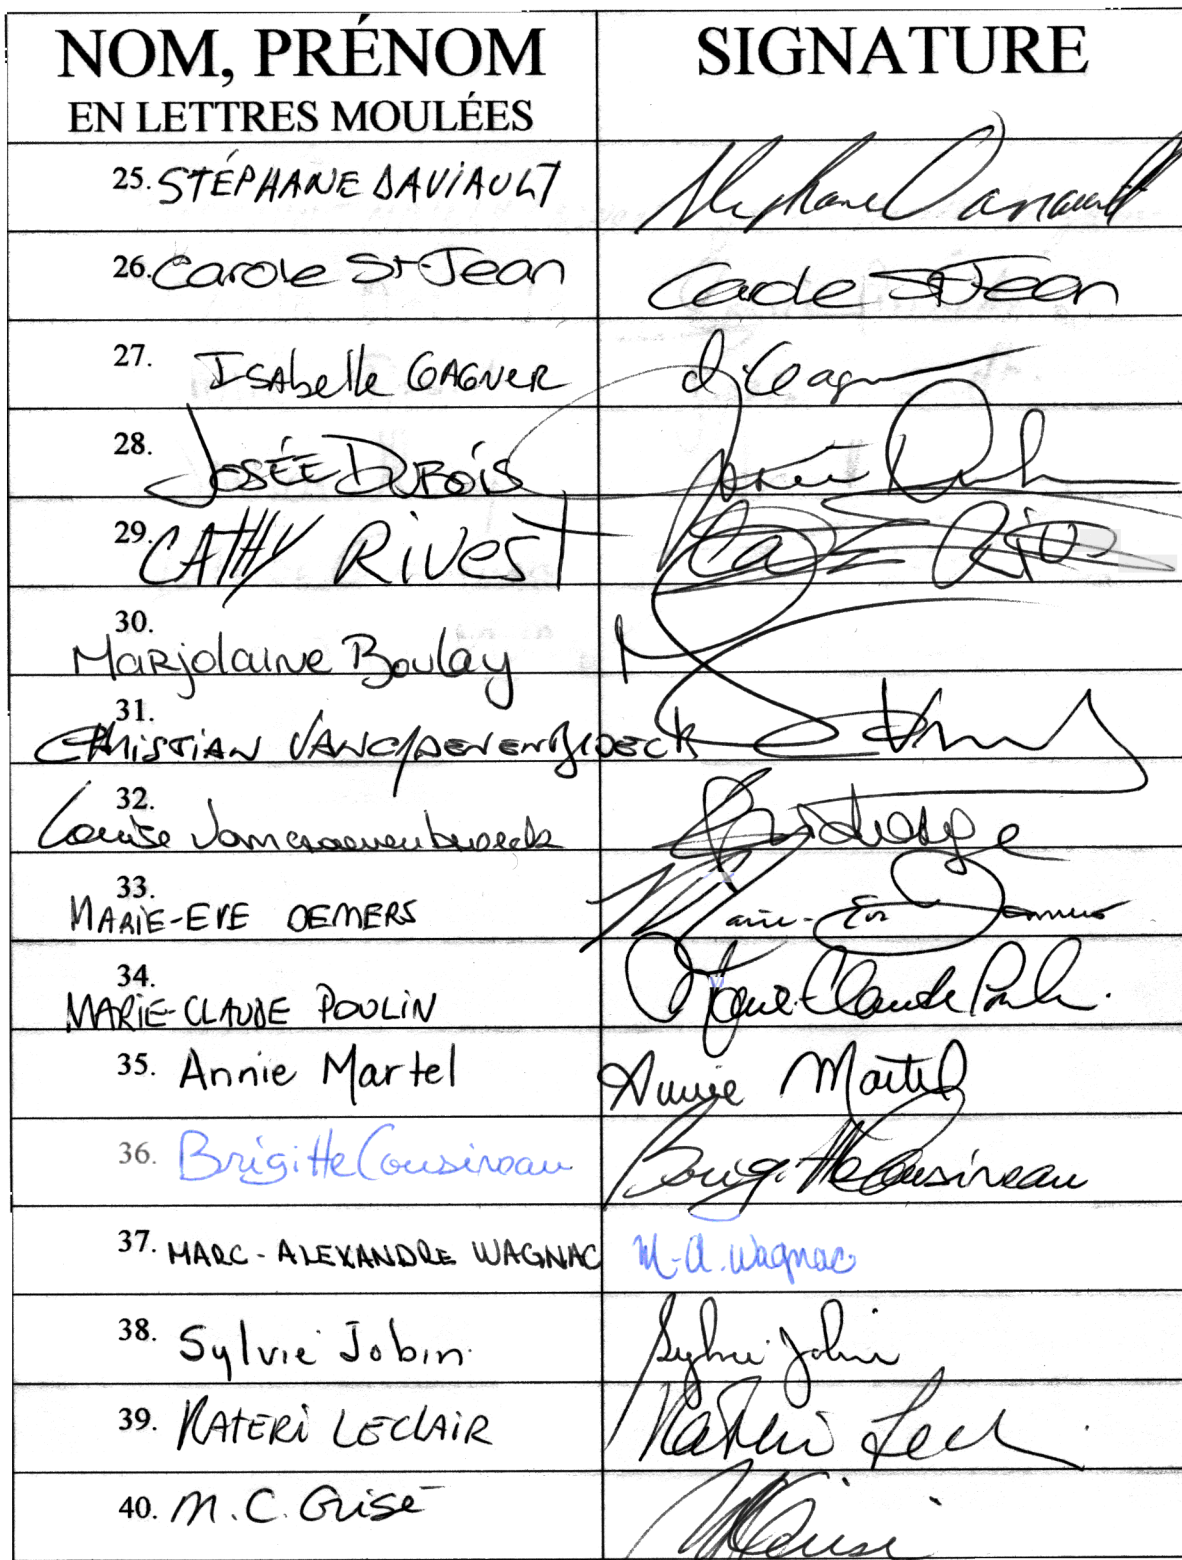 NOM, PRÉNOM SIGNATURE
EN LETTRES MOULÉES
25. STÉPHANE DAVIAULT Stéphane Daviault
26. Carole St-Jean Carole St-Jean
27. Isabelle GAGNER I. Gagner
28. JOSÉE DUBOIS Josée
29. CATHY RIVEST
30. Marjolaine Boulay
31. CHRISTIAN
32. Louise
33. MARIE-EVE DEMERS Marie-Eve Demers
34. MARIE-CLAUDE POULIN Marie-Claude Poulin
35. Annie Martel Annie Martel
36. Brigitte Cousineau Brigitte Cousineau
37. MARC-ALEXANDRE WAGNAC M-A. Wagnac
38. Sylvie Jobin Sylvie Jobin
39. KATERI LECLAIR Kateri Lecl
40. M.C. Grisé